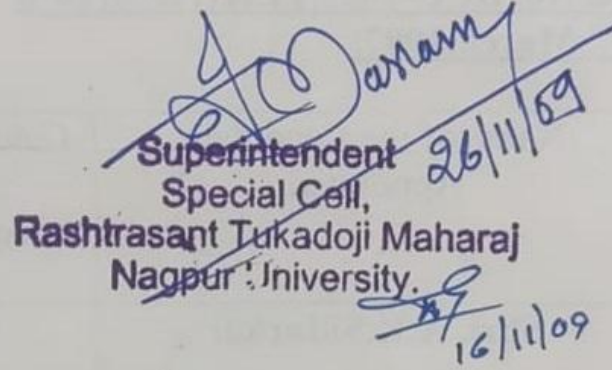 26/11/09
Superintendent
Special Cell,
Rashtrasant Tukadoji Maharaj
Nagpur University.
16/11/09